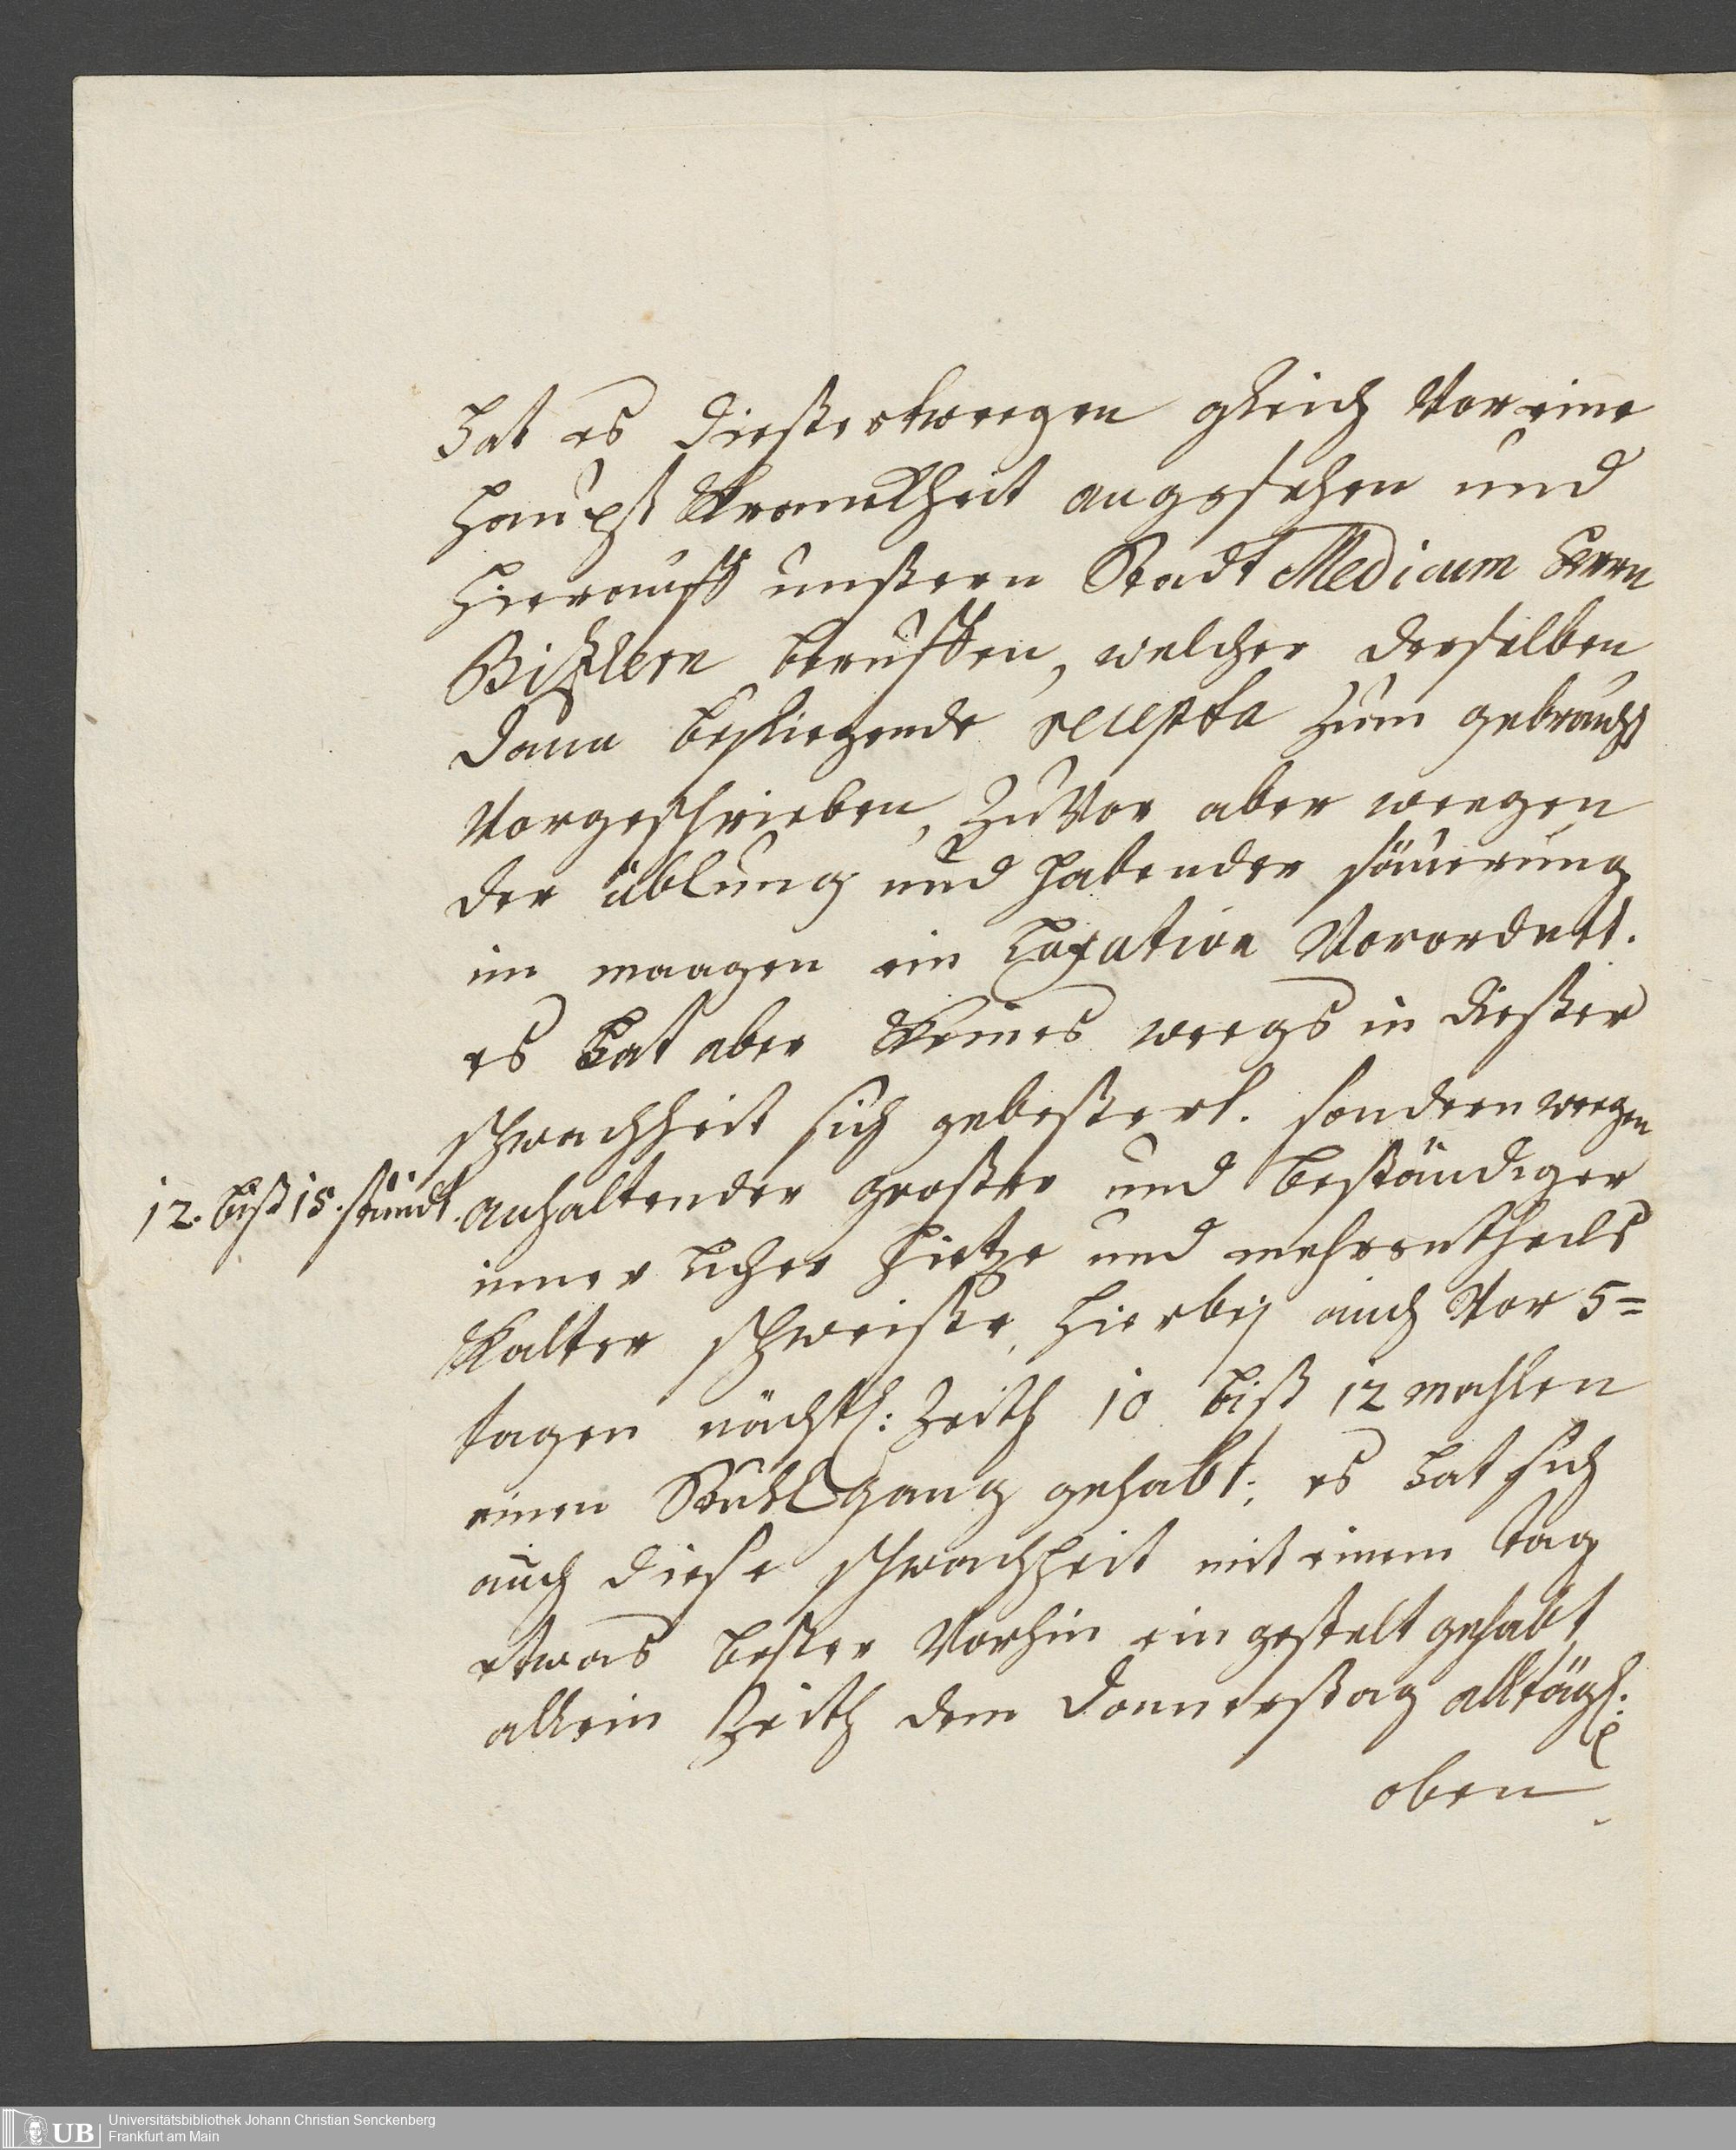 hat es dießertweegen gleich Vor eine
Haupt Kranckheit angesehen und
hierauff unßeren Stadt Medicum Herrn
beruffen, welcher derselben
dann beyliegende recepta zum gebrauch
Vorgeschrieben, zuVor aber weegen
der üblung und habender säuerung
im maagen ein Laxativ Verordnett.
es hat aber Keines weegs in dießer
schwachheit sich gebeßert. sondern weegen
12. biß 15. stündt. anhaltender großer und beständiger
innerlicher Hietze und mehrentheils
Kalter schweiße, hierbey auch Vor 5=
tagen nächtl: Zeith 10 biß 12 mahlen
einen Stuhlgang gehabt; es hat sich
auch diese schwachheit mit einem tag
etwas beßer Vorhin ein gestelt gehabt
allein Zeith dem Donnerstag alltägl:
oben
Universitätsbibliothek Johann Christian Senckenberg
UB Frankfurt am Main